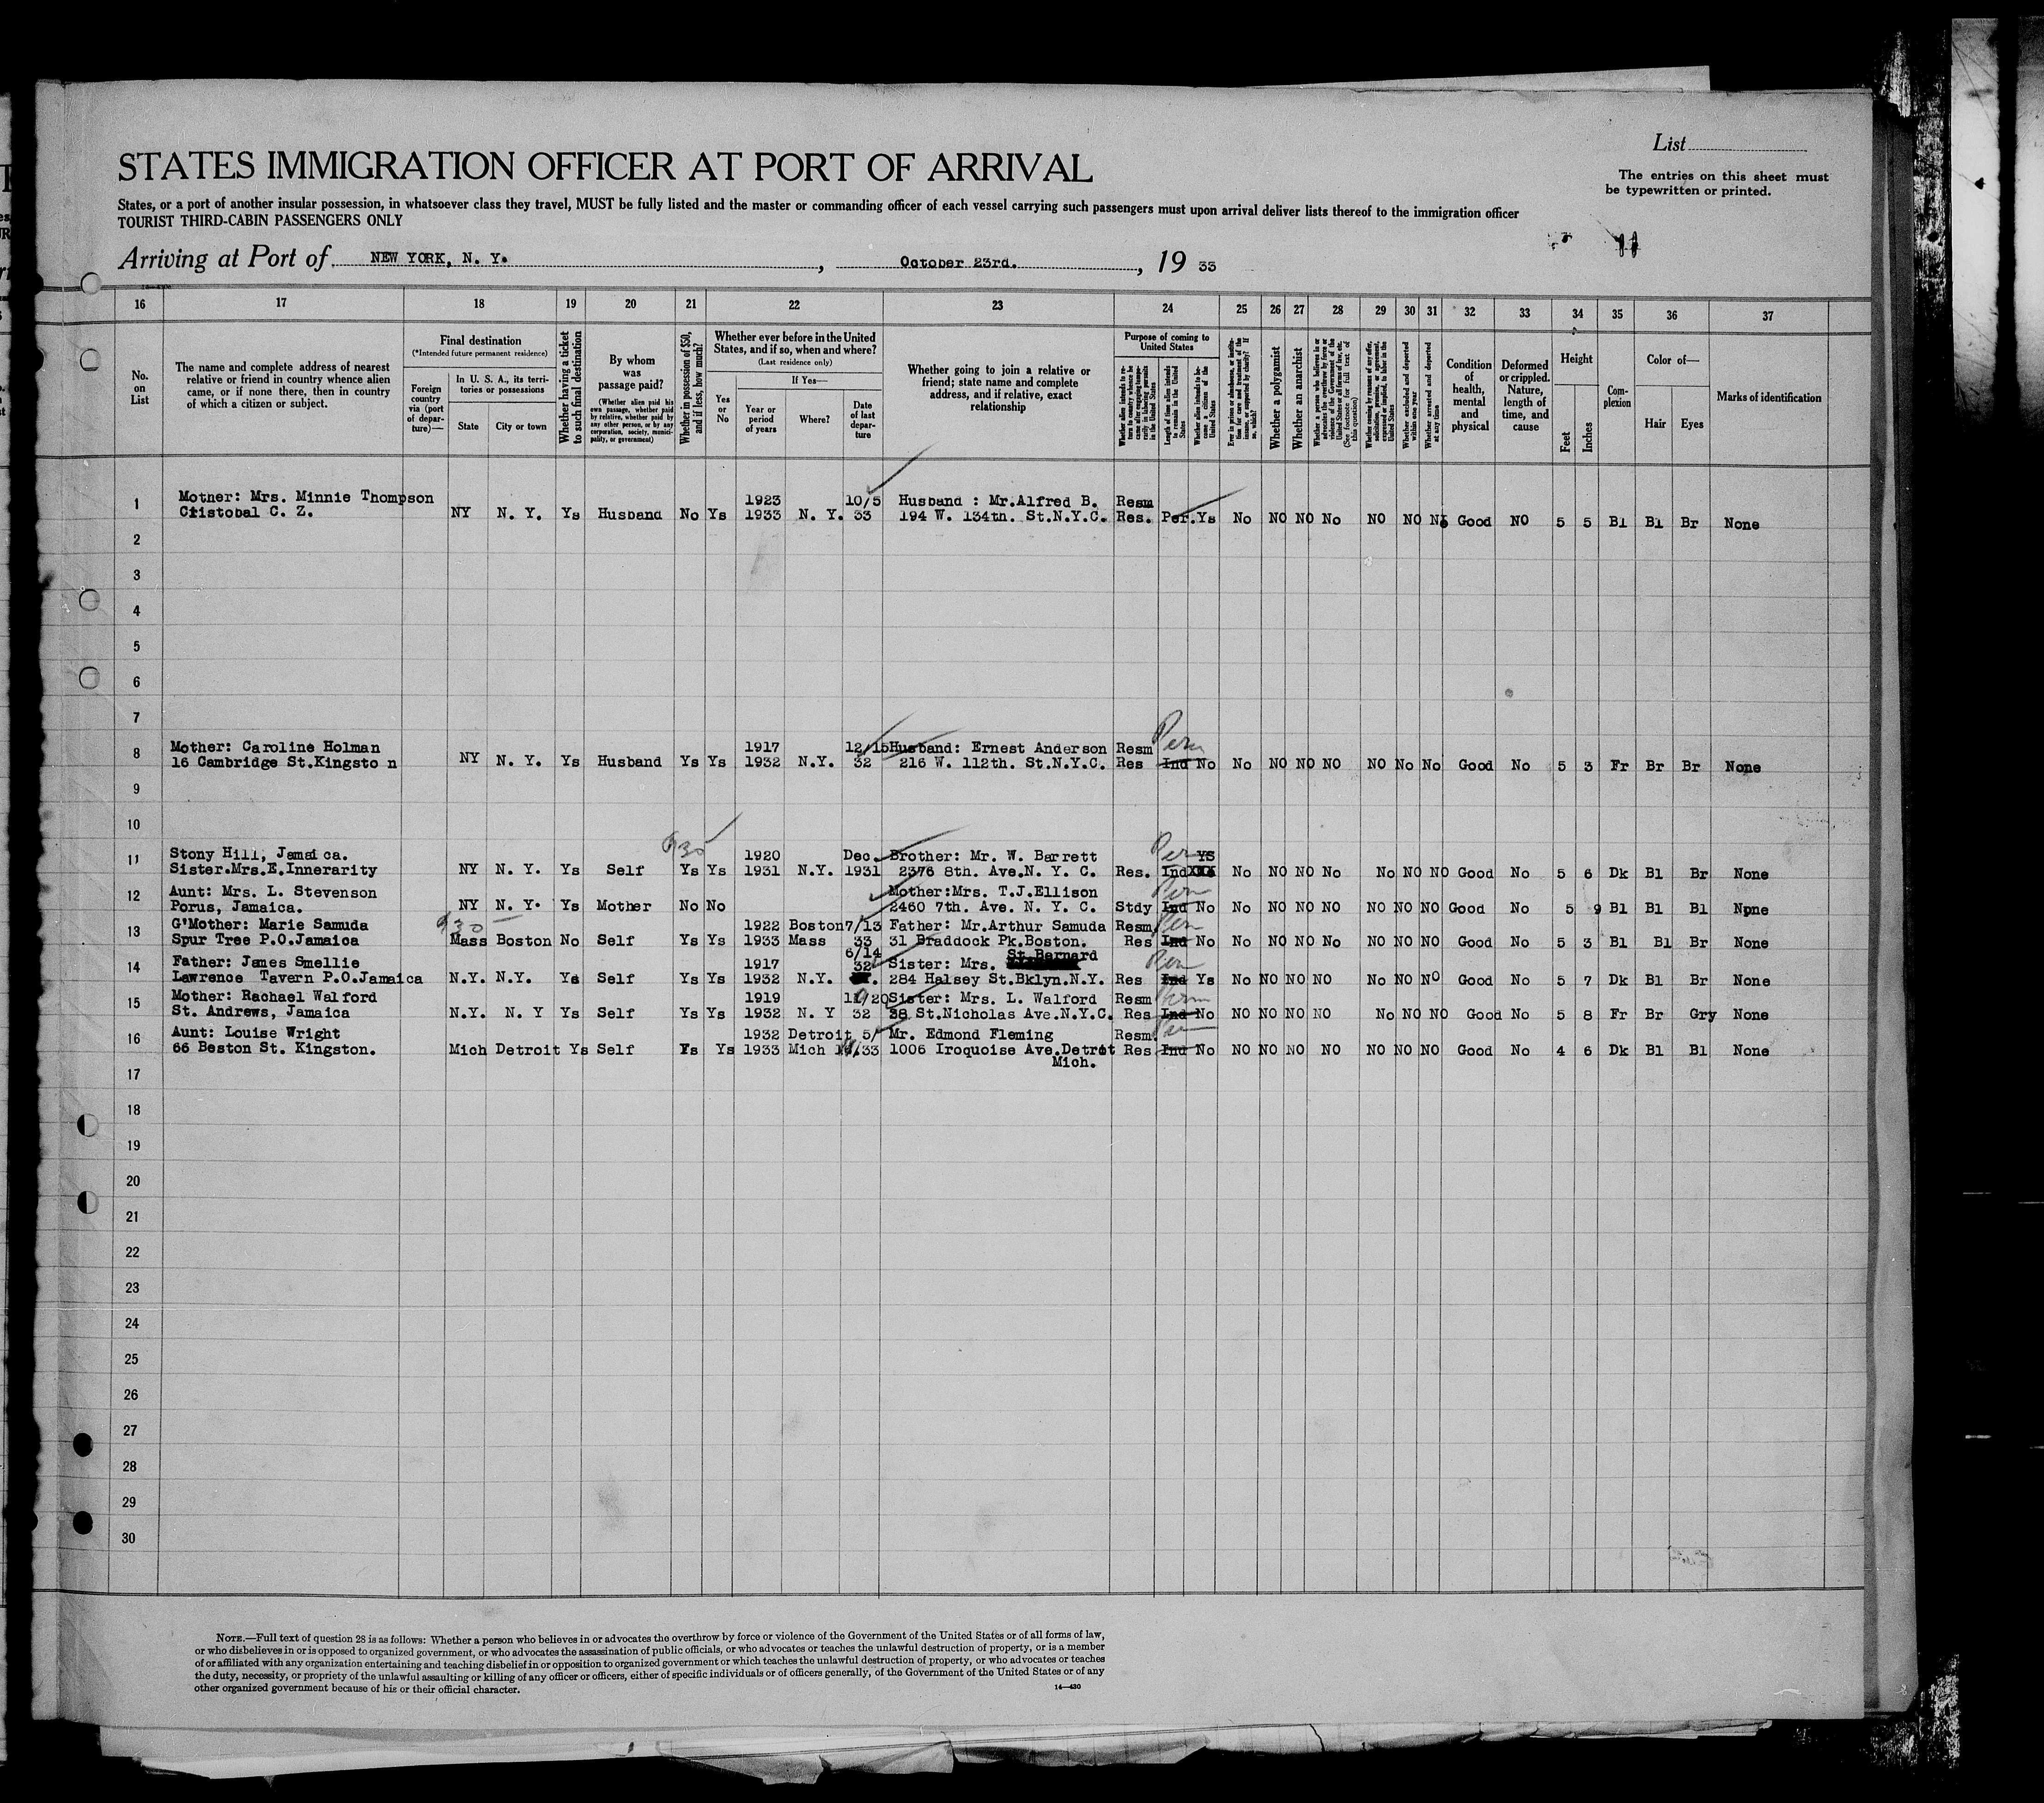 List
STATES IMMIGRATION OFFICER AT PORT OF ARRIVAL
The entries on this sheet must
be typewritten or printed.
States, or a port of another insular possession, in whatsoever class they travel, MUST be fully listed and the master or commanding officer of each vessel carrying such passengers must upon arrival deliver lists thereof to the immigration officer
TOURIST THIRD-CABIN PASSENGERS ONLY
Arriving at Port of NEW YORK, N. Y. , October 23rd. , 19 33
16 17 18 19 20 21 22 23 24 25 26 27 28 29 30 31 32 33 34 35 36 37
No. on List
The name and complete address of nearest
relative or friend in country whence alien
came, or if none there, then in country
of which a citizen or subject.
Final destination
(*Intended future permanent residence)
Foreign country via (port of departure)—
In U. S. A., its territories or possessions
State
City or town
Whether having a ticket to such final destination
By whom was passage paid?
(Whether alien paid his own passage, whether paid by relative, whether paid by any other person, or by any corporation, society, municipality, or government)
Whether in possession of $50, and if less, how much?
Whether ever before in the United
States, and if so, when and where?
(Last residence only)
Yes or No
If Yes—
Year or period of years
Where?
Date of last departure
Whether going to join a relative or
friend; state name and complete
address, and if relative, exact
relationship
Purpose of coming to United States
Length of time alien intends to remain in the United States
Whether alien intends to become a citizen of the United States
Whether a polygamist
Whether an anarchist
(See footnote for full text of this question)
Whether arrested and deported at any time
Condition of health, mental and physical
Deformed or crippled. Nature, length of time, and cause
Height
Feet
Inches
Complexion
Color of—
Hair
Eyes
Marks of identification
1 Mother: Mrs. Minnie Thompson 1923 10/5 Husband : Mr.Alfred B. Resm
Cristobal C. Z. NY N. Y. Ys Husband No Ys 1933 N. Y. 33 194 W. 134th. St.N.Y.C. Res. Per. Ys No NO NO No NO NO No Good NO 5 5 Bl Bl Br None
2
3
4
5
6
7
8 Mother: Caroline Holman 1917 12/15 Husband: Ernest Anderson Resm Perm
16 Cambridge St.Kingsto n NY N. Y. Ys Husband Ys Ys 1932 N.Y. 32 216 W. 112th. St.N.Y.C. Res Ind No No NO NO NO NO No No Good No 5 3 Fr Br Br None
9
10
11 Stony Hill, Jamaica. 1920 Dec. Brother: Mr. W. Barrett Per YS
Sister.Mrs.E.Innerarity NY N. Y. Ys Self Ys Ys 1931 N.Y. 1931 2376 8th. Ave.N. Y. C. Res. Ind No NO NO No No NO NO Good No 5 6 Dk Bl Br None
12 Aunt: Mrs. L. Stevenson Mother:Mrs. T.J.Ellison Per
Porus, Jamaica. NY N. Y. Ys Mother No No 2460 7th. Ave. N. Y. C. Stdy Ind No No NO NO NO NO NO NO Good No 5 9 Bl Bl Bl None
13 G'Mother: Marie Samuda 1922 Boston 7/13 Father: Mr.Arthur Samuda Resm Per
Spur Tree P.O.Jamaica Mass Boston No Self Ys Ys 1933 Mass 33 31 Braddock Pk.Boston. Res Ind No No NO NO No NO NO NO Good No 5 3 Bl Bl Br None
14 Father: James Smellie 1917 6/14 32 Sister: Mrs. St.Bernard Per
Lawrence Tavern P.O.Jamaica N.Y. N.Y. Ys Self Ys Ys 1932 N.Y. 284 Halsey St.Bklyn.N.Y. Res Ind Ys No NO NO NO No NO NO Good No 5 7 Dk Bl Br None
15 Mother: Rachael Walford 1919 11/20 Sister: Mrs. L. Walford Resm Perm
St. Andrews, Jamaica N.Y. N. Y Ys Self Ys Ys 1932 N. Y 32 38 St.Nicholas Ave.N.Y.C. Res Ind No NO NO NO NO No NO NO Good No 5 8 Fr Br Gry None
16 Aunt: Louise Wright 1932 Detroit 5/ Mr. Edmond Fleming Resm.
66 Beston St. Kingston. Mich Detroit Ys Self Ys Ys 1933 Mich /33 1006 Iroquoise Ave.Detrot Res Ind No NO NO NO NO NO NO NO Good No 4 6 Dk Bl Bl None
Mich.
17
18
19
20
21
22
23
24
25
26
27
28
29
30
NOTE.—Full text of question 28 is as follows: Whether a person who believes in or advocates the overthrow by force or violence of the Government of the United States or of all forms of law,
or who disbelieves in or is opposed to organized government, or who advocates the assassination of public officials, or who advocates or teaches the unlawful destruction of property, or is a member
of or affiliated with any organization entertaining and teaching disbelief in or opposition to organized government or which teaches the unlawful destruction of property, or who advocates or teaches
the duty, necessity, or propriety of the unlawful assaulting or killing of any officer or officers, either of specific individuals or of officers generally, of the Government of the United States or of any
other organized government because of his or their official character.
14—430